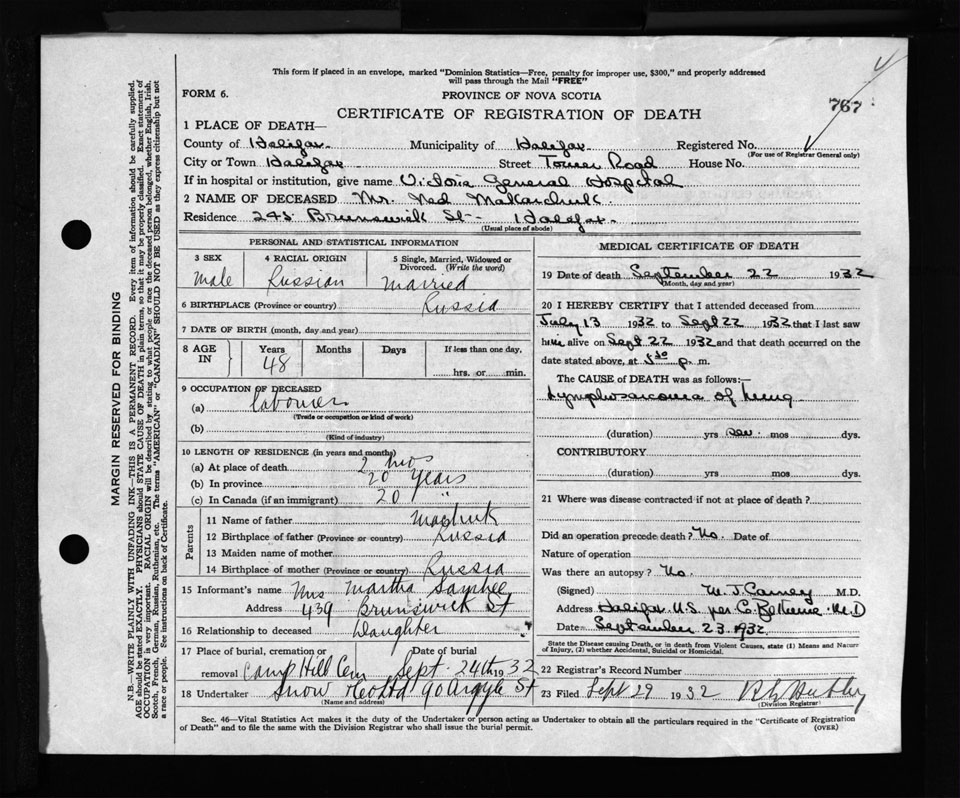 This form if placed in an envelope, marked "Dominion Statistics—Free, penalty for improper use, $300," and properly addressed
will pass through the Mail "FREE"
FORM 6.
PROVINCE OF NOVA SCOTIA
767
CERTIFICATE OF REGISTRATION OF DEATH
1 PLACE OF DEATH—
County of Halifax Municipality of Halifax Registered No.
(For use of Registrar General only)
City or Town Halifax Street Tower Road House No.
If in hospital or institution, give name Victoria General Hospital
2 NAME OF DECEASED Mr. Ned Makarchuk
Residence 245 Brunswick St- Halifax
(Usual place of abode)
PERSONAL AND STATISTICAL INFORMATION
3 SEX 4 RACIAL ORIGIN 5 Single, Married, Widowed or
Divorced. (Write the word)
Male Russian Married
6 BIRTHPLACE (Province or country) Russia
7 DATE OF BIRTH (month, day and year)
8 AGE IN Years Months Days If less than one day,
48 hrs. or min.
9 OCCUPATION OF DECEASED
(a) Labourer
(Trade or occupation or kind of work)
(b)
(Kind of industry)
10 LENGTH OF RESIDENCE (in years and months)
(a) At place of death 2 mos
(b) In province 20 years
(c) In Canada (if an immigrant) 20 "
Parents
11 Name of father
12 Birthplace of father (Province or country) Russia
13 Maiden name of mother
14 Birthplace of mother (Province or country) Russia
15 Informant's name Mrs Martha
Address 439 Brunswick St
16 Relationship to deceased Daughter
17 Place of burial, cremation or Date of burial
removal Camp Hill Cem Sept. 24th 1932
18 Undertaker Snow & Co Ltd 90 Argyle St
(Name and address)
MEDICAL CERTIFICATE OF DEATH
19 Date of death September 22 1932
(Month, day and year)
20 I HEREBY CERTIFY that I attended deceased from
July 13 1932 to Sept 22 1932 that I last saw
him alive on Sept 22 1932 and that death occurred on the
date stated above, at 5 30 p. m.
The CAUSE of DEATH was as follows:—
Lymphosarcoma of Lung
(duration) yrs mos dys.
CONTRIBUTORY
(duration) yrs mos dys.
21 Where was disease contracted if not at place of death?
Did an operation precede death? No. Date of
Nature of operation
Was there an autopsy? No
(Signed) W. J. Carney M.D.
Address Halifax N.S. per M.D
Date September 23 1932.
State the Disease causing Death, or in death from Violent Causes, state (1) Means and Nature
of Injury, (2) whether Accidental, Suicidal or Homicidal.
22 Registrar's Record Number
23 Filed Sept 29 1932
(Division Registrar)
Sec. 46—Vital Statistics Act makes it the duty of the Undertaker or person acting as Undertaker to obtain all the particulars required in the "Certificate of Registration
of Death" and to file the same with the Division Registrar who shall issue the burial permit.
(OVER)
MARGIN RESERVED FOR BINDING
N.B.—WRITE PLAINLY WITH UNFADING INK—THIS IS A PERMANENT RECORD. Every item of information should be carefully supplied.
AGE should be stated EXACTLY. PHYSICIANS should STATE CAUSE OF DEATH in plain terms, so that it may be properly classified. Exact statement of
OCCUPATION is very important. RACIAL ORIGIN will be described by stating to what people or race the deceased person belonged, whether English, Irish,
Scotch, French, German, Russian, Ruthenian, etc. The terms "AMERICAN" or "CANADIAN" SHOULD NOT BE USED as they express citizenship but not
a race or people. See instructions on back of Certificate.